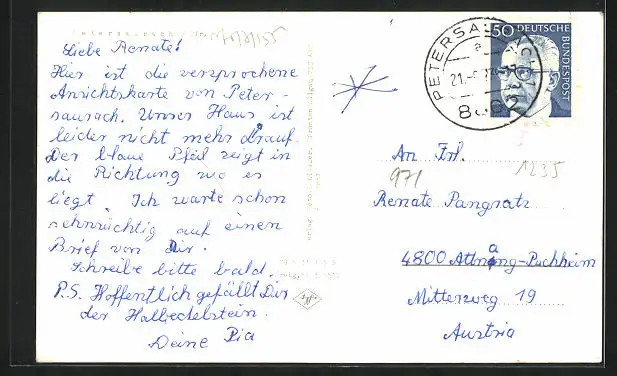 Liebe Renate!
Hier ist die versprochene
Ansichtskarte von Peter-
saurach. Unser Haus ist
leider nicht mehr drauf.
Der blaue Pfeil zeigt in
die Richtung wo es
liegt. Ich warte schon
sehnsüchtig auf einen
Brief von Dir.
Schreibe bitte bald.
P.S. Hoffentlich gefällt Dir
der Halbedelstein.
Deine Pia
PETERSAURACH
a
21.
50 DEUTSCHE
BUNDESPOST
An Frl.
971
1235
Renate Pangratz
4800 Attnang-Puchheim
Mitterweg 19
Austria